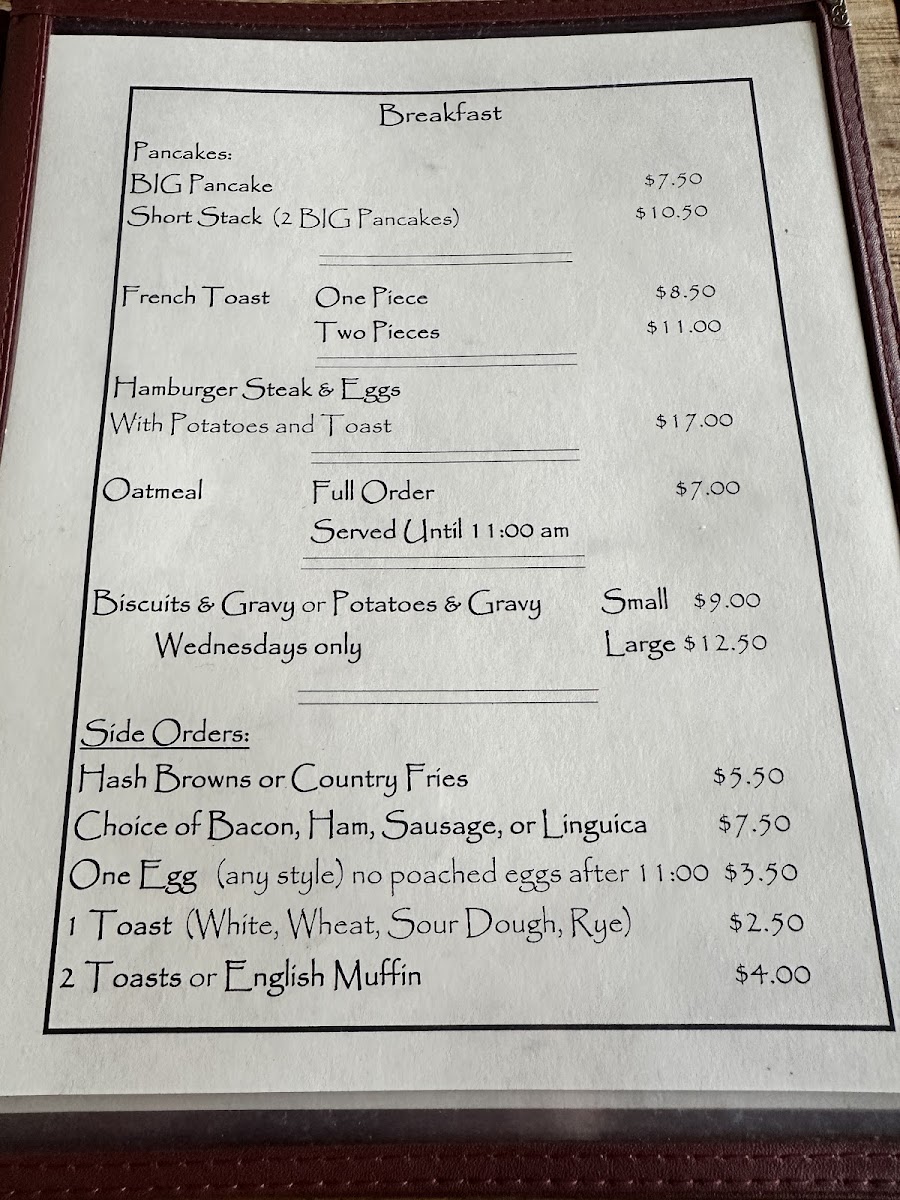 Breakfast
Pancakes:
BIG Pancake $7.50
Short Stack (2 BIG Pancakes) $10.50
French Toast One Piece $8.50
Two Pieces $11.00
Hamburger Steak & Eggs
With Potatoes and Toast $17.00
Oatmeal Full Order $7.00
Served Until 11:00 am
Biscuits & Gravy or Potatoes & Gravy Small $9.00
Wednesdays only Large $12.50
Side Orders:
Hash Browns or Country Fries $5.50
Choice of Bacon, Ham, Sausage, or Linguica $7.50
One Egg (any style) no poached eggs after 11:00 $3.50
1 Toast (White, Wheat, Sour Dough, Rye) $2.50
2 Toasts or English Muffin $4.00